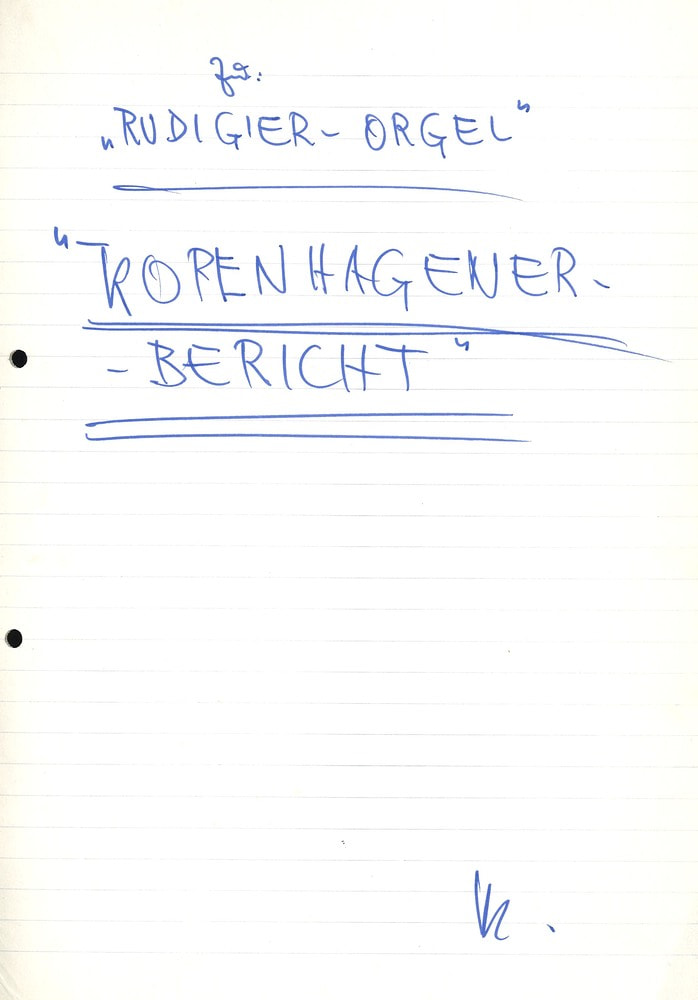 „RUDIGIER- ORGEL"
"KOPENHAGENER-
-BERICHT"
K.